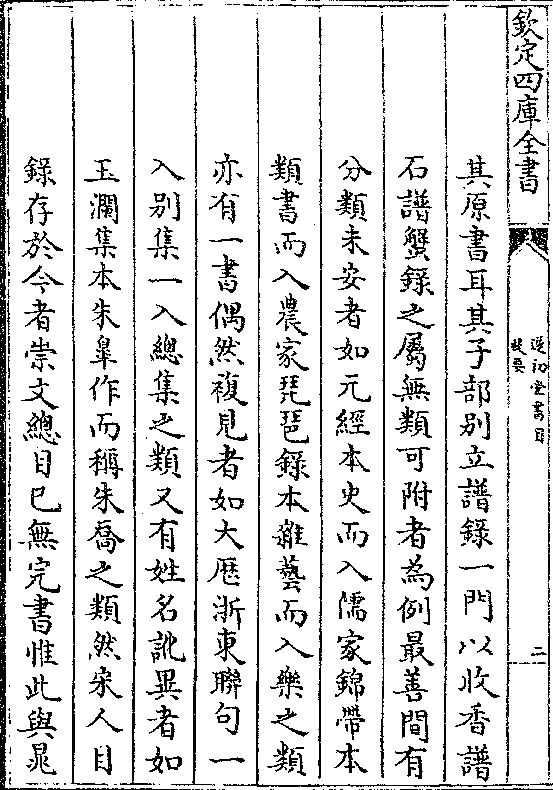 欽定四庫全書
遂初堂書目
提要
二
其原書耳其子部别立譜錄一門以收香譜
石譜蟹錄之屬無類可附者為例最善間有
分類未安者如元經本史而入儒家錦帶本
類書而入農家琵琶錄本雜藝而入樂之類
亦有一書偶然複見者如大歴浙東聯句一
入别集一入總集之類又有姓名訛異者如
玉瀾集本朱皋作而稱朱喬之類然宋人目
錄存於今者崇文總目已無完書惟此與晁